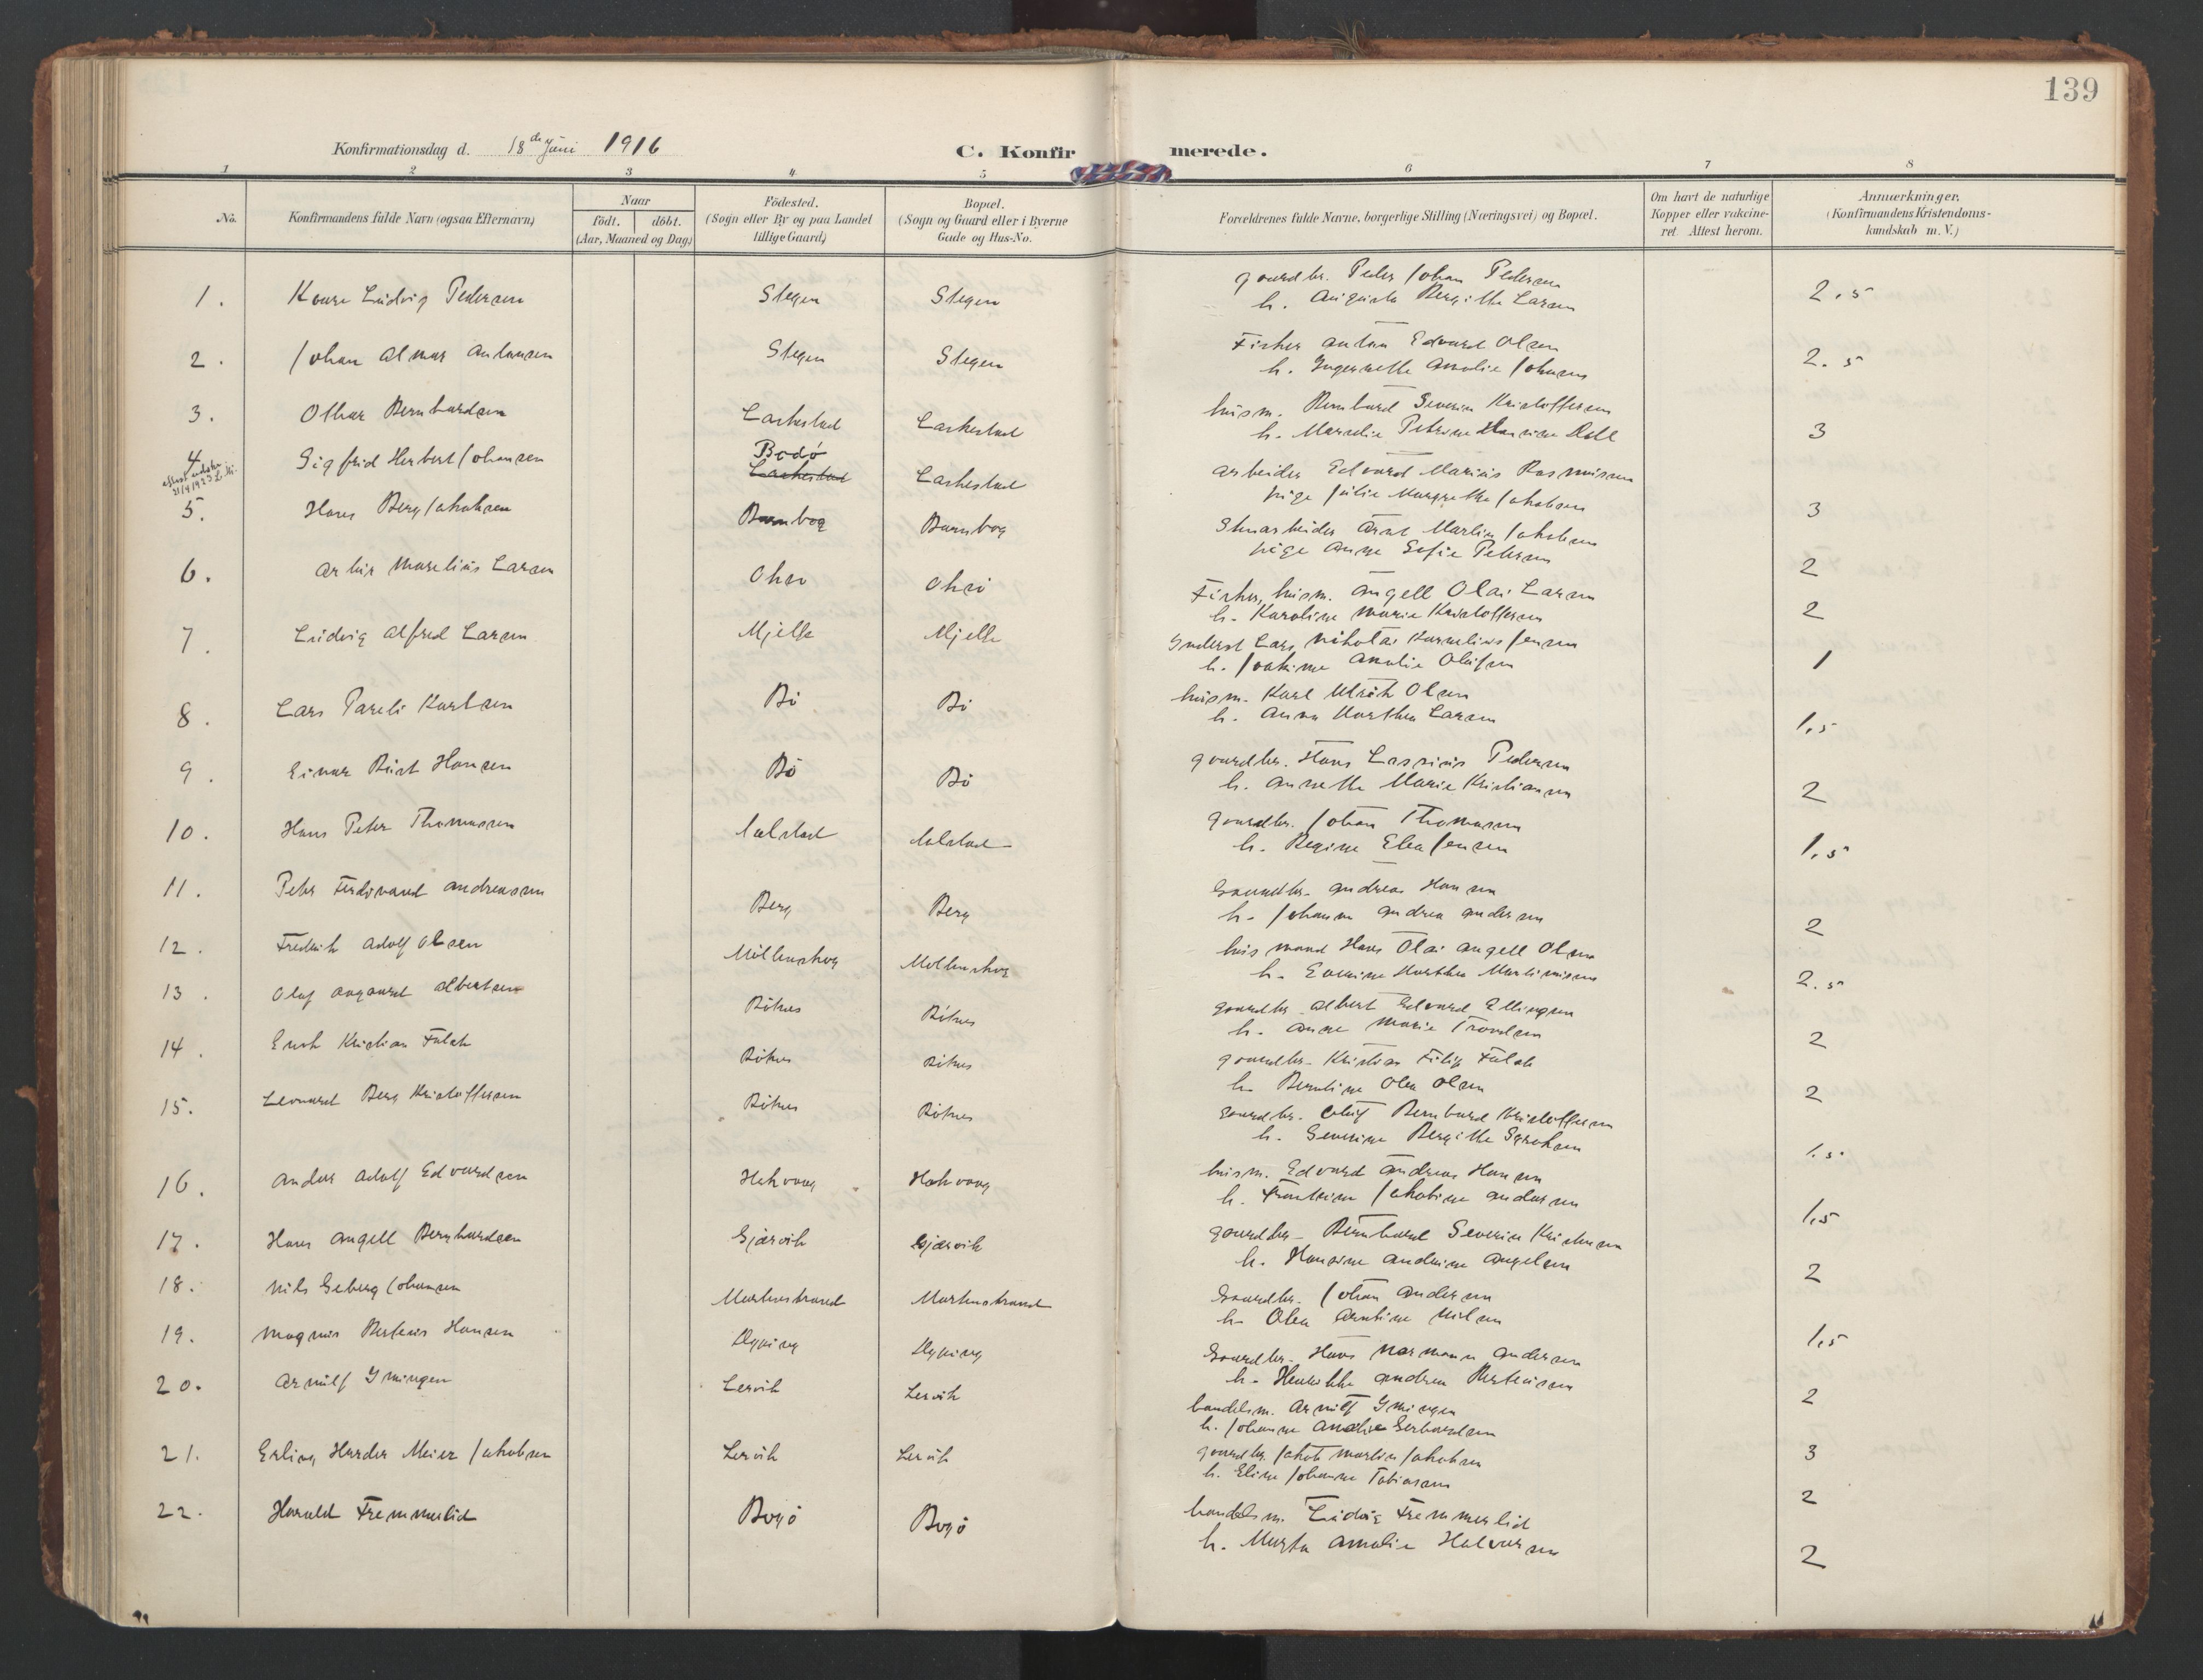 139
Konfirmationsdag d. 18de Juni 1916
C. Konfirmerede.
1 2 3 4 5 6 7 8
No.
Konfirmandens fulde Navn (ogsaa Efternavn)
Naar
födt. döbt.
(Aar, Maaned og Dag)
Födested.
(Sogn eller By og paa Landet
tillige Gaard)
Bopæl.
(Sogn og Gaard eller i Byerne
Gade og Hus-No.
Forældrenes fulde Navne, borgerlige Stilling (Næringsvei) og Bopæl.
Om havt de naturlige
Kopper eller vakcine-
ret. Attest herom.
Anmærkninger.
(Konfirmandens Kristendoms-
kundskab m. V.)
1. Kaare Ludvig Pedersen Stegen Stegen gaardbr. Peder Johan Pedersen
h. Augusta Bergitte Larsen 2.5
2. Johan Almar Antonsen Stegen Stegen Fisker Anton Edvard Olsen
h. Ingernette Amalie Johansen 2.5
3. Othar Bernhardsen Laskestad Laskestad husm. Bernhard Severin Kristoffersen
h. Marselie Petrine Hansine 3
4 Sigfrid Herbert Johansen Bodö Laskestad Laskestad arbeider Edvard Marius Rasmussen
pige Julie Margrethe Jakobsen 3
5. Hans Berg Jakobsen Barnbog Barnbog Stenarbeider Arnt Martin Jakobsen
pige Anne Sofie Petersen 2
6. Artur Marelius Larsen Fisker, husm. Angell Olai Larsen
h. Karoline Marie Kristoffersen 2
7. Ludvig Alfred Larsen Mjelle Mjelle Inderst Lars Nikolai Kornelius Jensen
h. Joakime Amalie Olufsen 1
8. Lars Pareli Karlsen Bö Bö husm. Karl Ulrik Olsen
h. Anna Marthea Larsen 1,5
9. Einar Hansen Bö Bö gaardbr. Hans Lassius Pedersen
h. Annette Marie Kristiansen 2
10. Hans Peter Thomassen gaardbr. Johan Thomassen
h. Regine Elea Jensen 1,5
11. Peter Ferdinand Andreassen Berg Berg Gaardbr. Andreas Hansen
h. Johanna Andrea Andersen 2
12. Fredrik Adolf Olsen Möllenskog Möllenskog husmand Hans Olai Angell Olsen
h. Marthea 2.5
13. Olaf Aagaard Albertsen Bötnes Bötnes gaardbr. Albert Edvard Ellingsen
h. Anne Marie Trondsen 2
14. Kristian Falch Bötnes Bötnes gaardbr. Kristian Filip Falch
h. Berntine Olea Olsen 2
15. Leonard Berg Kristoffersen Bötnes Bötnes gaardbr. Bernhard Kristoffersen
h. Severine Bergitte 1.5
16. Andor Adolf Edvardsen Hakvaag Hakvaag husm. Edvard Andreas Hansen
h. Jakobine Andersen 1,5
17. Hans Angell Bernhardsen Gjærvik Gjærvik gaardbr. Bernhard Severin Kristensen
h. Hansine Andrine Angelsen 2
18. Nils Seberg Johansen Markenstrand Markenstrand Gaardbr. Johan Andersen
h. Olea Arntine Nilsen 1,5
19. Magnus Berteus Hansen Dyping Dyping Gaardbr. Hans Normann Andersen
h. Henrikke Andrea Berteussen 2
20. Arnulf Ymingen Lervik Lervik handelsm. Arnulf Ymingen
h. Johanne Amalie Gerhardsen 3
21. Erling Harder Meier Jakobsen Lervik Lervik gaardbr. Jakob Martin Jakobsen
h. Eline Johanne Tobiassen 2
22. Harald Fremmerlid Bogö Bogö handelsm. Ludvig Fremmerlid
h. Marta Amalie Halvorsen 2